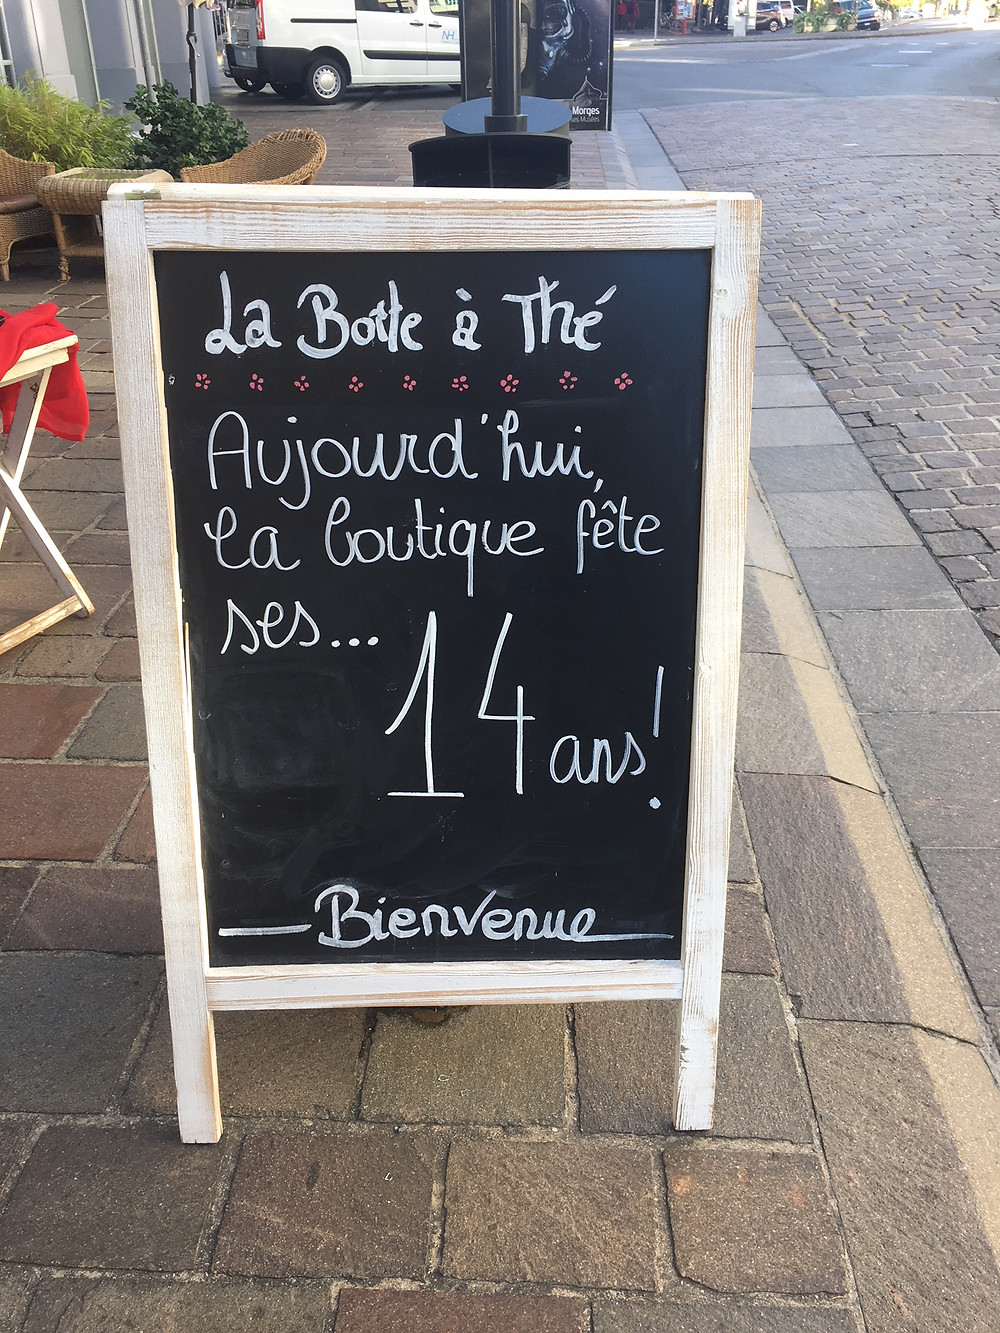 NH
Morges
des Musées
La Boîte à Thé
Aujourd'hui,
la boutique fête
ses...
14 ans!
Bienvenue